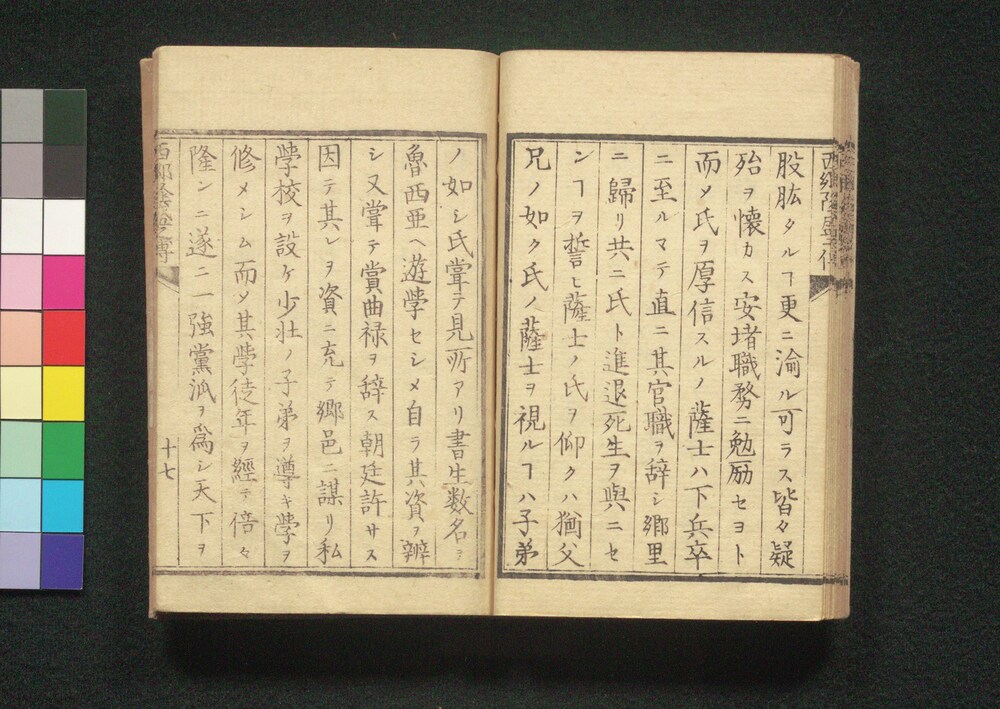 股肱タルヿ更ニ渝ル可ラス皆々疑
殆ヲ懐カス安堵職務ニ勉励セヨト
而メ氏ヲ厚信スルノ薩士ハ下兵卒
ニ至ルマテ直ニ其官職ヲ辞シ郷里
ニ歸リ共ニ氏ト進退死生ヲ與ニセ
ンヿヲ誓ヒ薩士ノ氏ヲ仰クハ猶父
兄ノ如ク氏ノ薩士ヲ視ルヿハ子弟
ノ如シ氏甞テ見所アリ書生数名ヲ
魯西亜ヘ遊学セシメ自ラ其資ヲ辨
シ又甞テ賞曲禄ヲ辞ス朝廷許サス
因テ其レヲ資ニ充テ郷邑ニ謀リ私
学校ヲ設ケ少壮ノ子弟ヲ導キ学ヲ
修メシム而メ其学徒年ヲ經テ倍々
隆ンニ遂ニ一強黨派ヲ為シ天下ヲ
十七